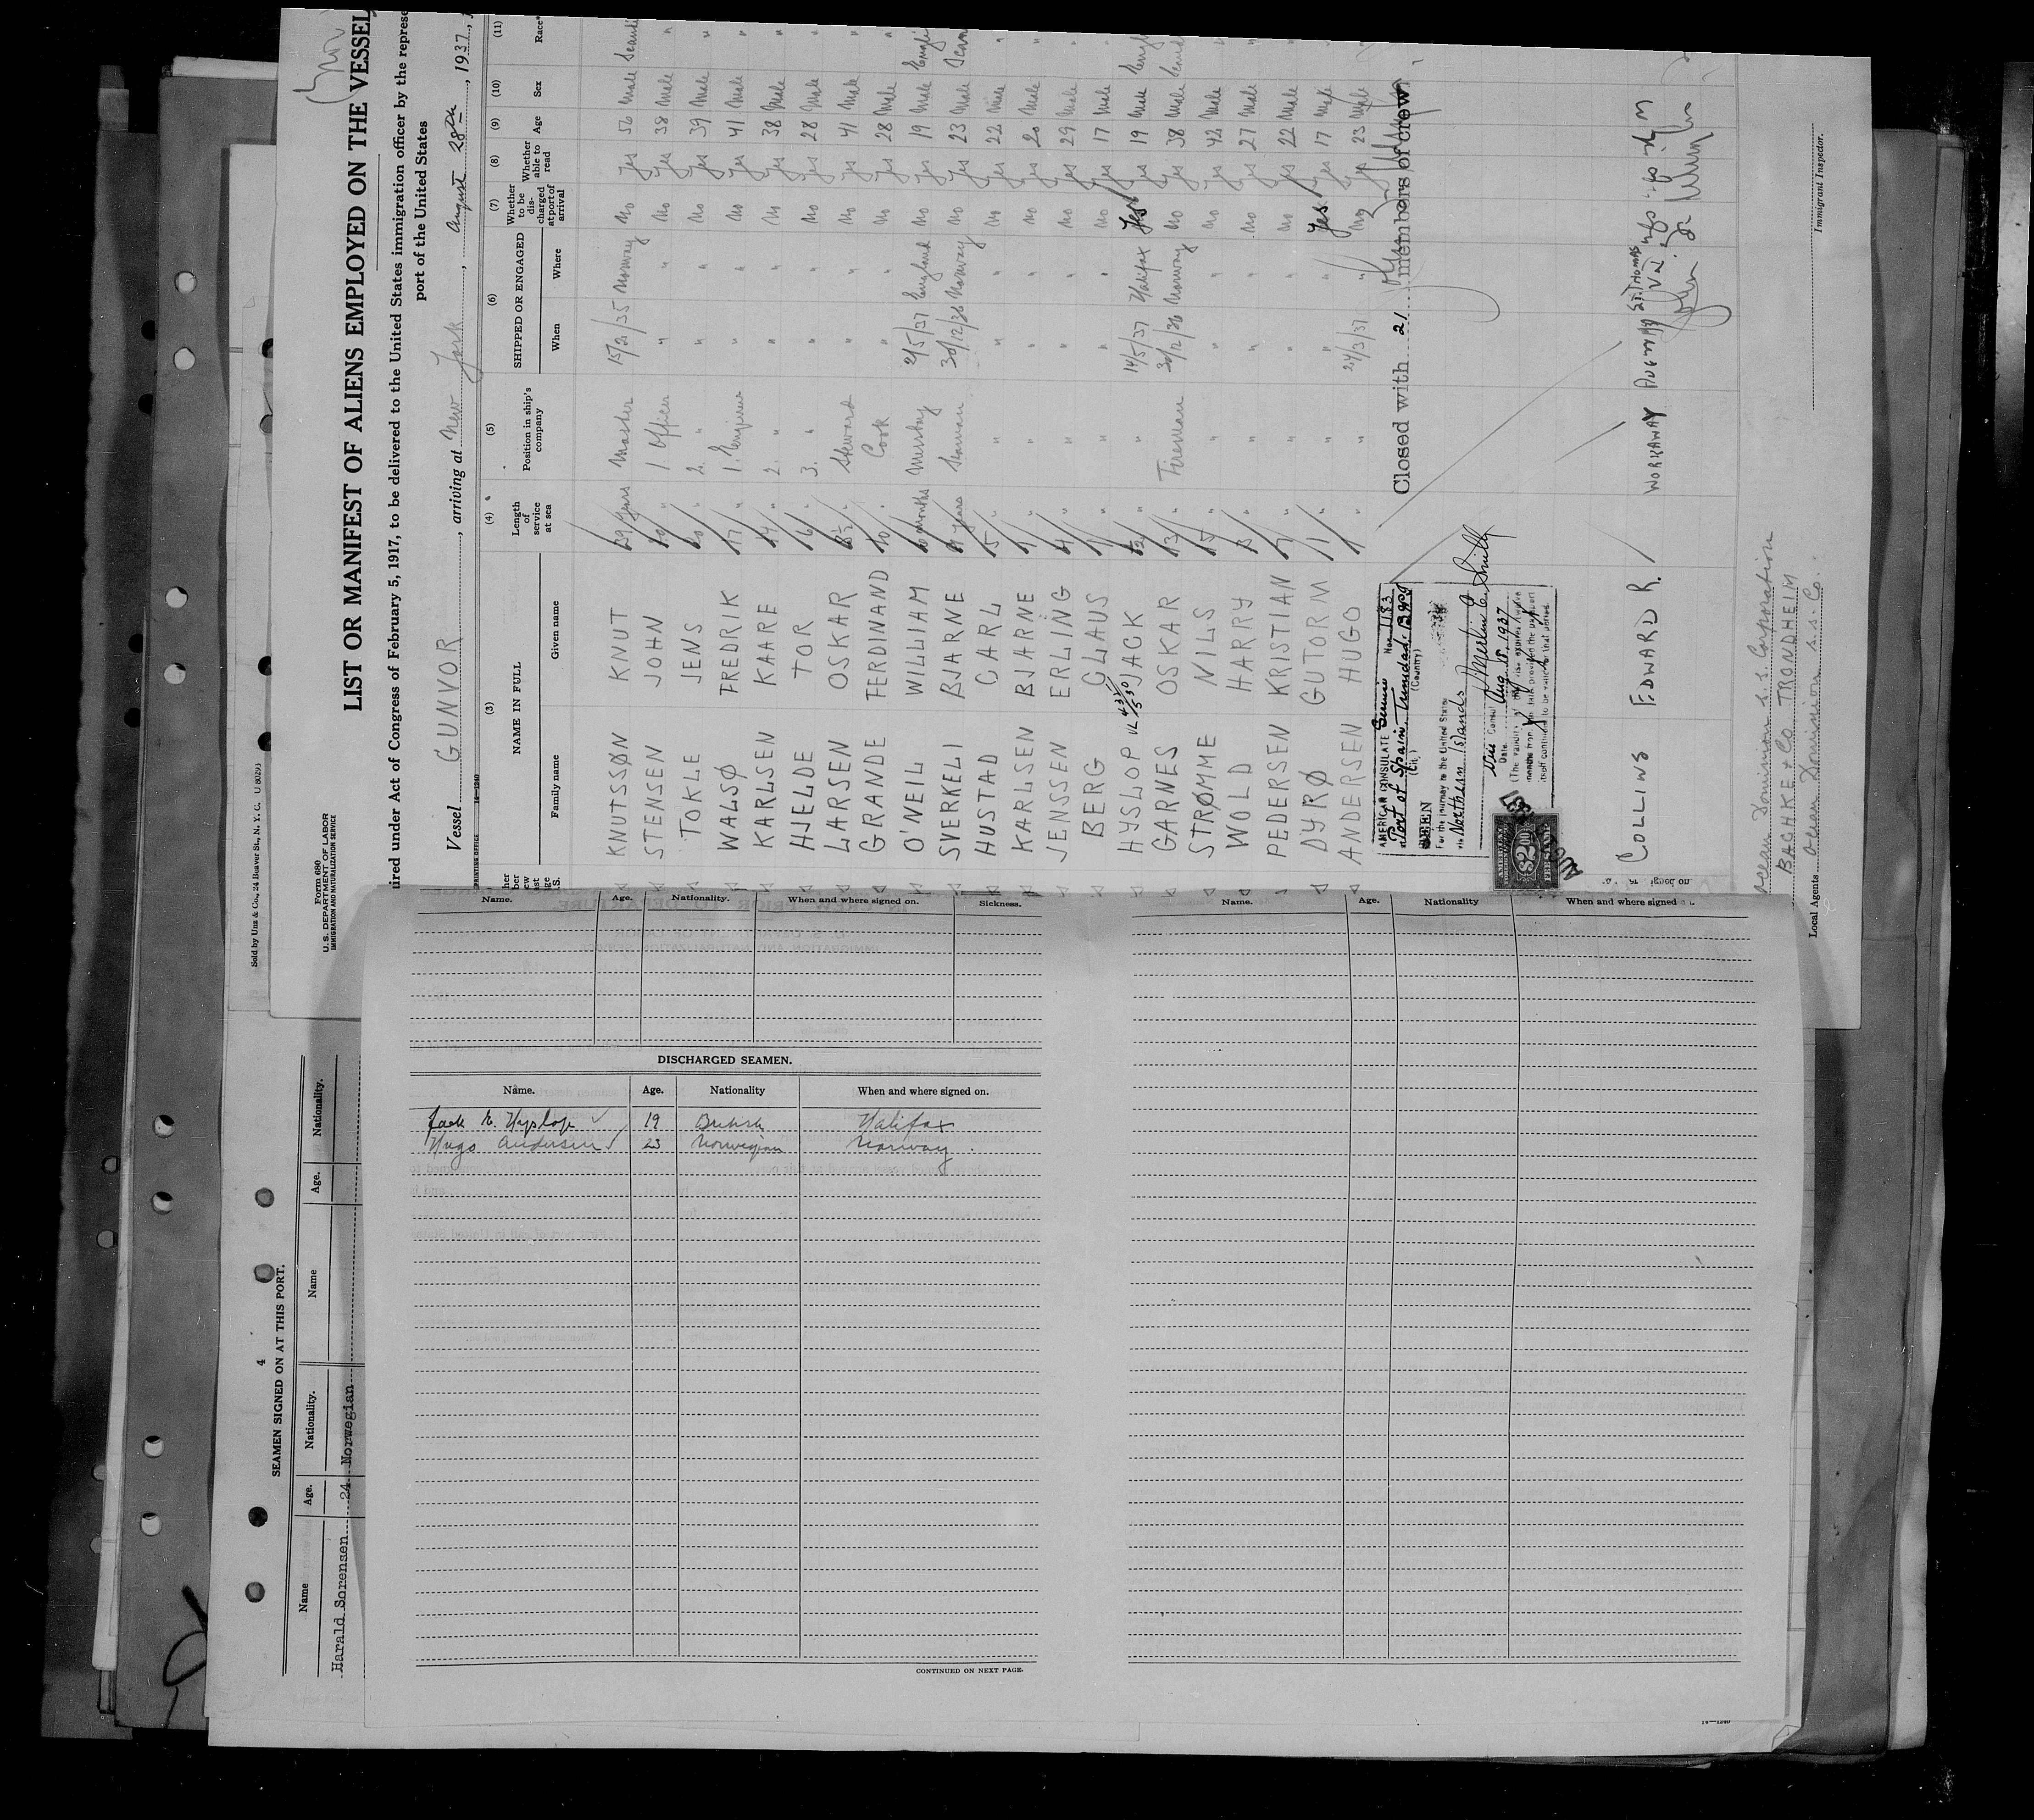 LIST OR MANIFEST OF ALIENS EMPLOYED ON THE VESSEL
uired under Act of Congress of February 5, 1917, to be delivered to the United States immigration officer by the represe
port of the United States
Sold by Unz & Co., 24 Beaver St., N. Y. C. U 80293
Form 680
U. S. DEPARTMENT OF LABOR
IMMIGRATION AND NATURALIZATION SERVICE
Vessel GUNVOR, arriving at New York, August 28th, 1937,
(3) (4) (5) (6) (7) (8) (9) (10) (11)
NAME IN FULL
Family name Given name
Length of service at sea
Position in ship's company
SHIPPED OR ENGAGED
When Where
Whether to be discharged at port of arrival
Whether able to read
Age Sex Race*
KNUTSSØN KNUT 29 years Master 15/2/35 Norway No Yes 56 Male
STENSEN JOHN " 1. Officer " " No Yes 38 Male "
TOKLE JENS " 2. " " " No Yes 39 Male "
WALSØ FREDRIK 17 " 1. Engineer " " No Yes 41 Male "
KARLSEN KAARE 14 " 2. " " " No Yes 38 Male "
HJELDE TOR 6 " 3. " " " No Yes 28 Male "
LARSEN OSKAR " Steward " " No Yes 41 Male "
GRANDE FERDINAND 10 " Cook " " No Yes 28 Male "
O'NEIL WILLIAM months Messboy 2/5/37 England No Yes 19 Male Engli
SVERKELI BJARNE years Seaman 30/12/36 Norway No Yes 23 Male Scan
HUSTAD CARL 5 " " " " No Yes 22 Male "
KARLSEN BJARNE " " " " No Yes 20 Male "
JENSSEN ERLING 4 " " " " No Yes 29 Male "
BERG CLAUS " " " " No Yes 17 Male
HYSLOP JACK " " 14/5/37 Halifax Yes Yes 19 Male Engl
GARNES OSKAR 13 " Fireman 30/12/36 Norway No Yes 38 Male Scand
STRØMME NILS 15 " " " " No Yes 42 Male "
WOLD HARRY " " " " No Yes 27 Male "
PEDERSEN KRISTIAN " " " " No Yes 22 Male "
DYRØ GUTORM 1 " " " " Yes Yes 17 Male "
ANDERSEN HUGO 1 " " 24/3/37 " No Yes 23 Male "
Closed with 21 members of crew
AMERICAN CONSULATE Service No. 1183
at Port of Spain, Trinidad, B.W.I.
(City) (Country)
SEEN
For the journey to the United States
via Northern Islands
Merlin E. Smith
Vice Consul
Date Aug 18, 1937
AMERICAN
$2.00
COLLINS EDWARD R. WORKAWAY ST. THOMAS V.I.
Ocean Dominion S.S. Corporation
BACHKE & CO. TRONDHEIM
Local Agents Ocean Dominion S.S. Co.
Immigrant Inspector.
Name. Age. Nationality. When and where signed on. Sickness.
Name. Age. Nationality When and where signed
DISCHARGED SEAMEN.
Name. Age. Nationality When and where signed on.
Jack E. Hyslop 19 British Halifax
Hugo Andersen 23 Norwegian Norway
CONTINUED ON NEXT PAGE.
4
SEAMEN SIGNED ON AT THIS PORT.
Name Age. Nationality. Name Age. Nationality.
Harald Sorensen 24 Norwegian